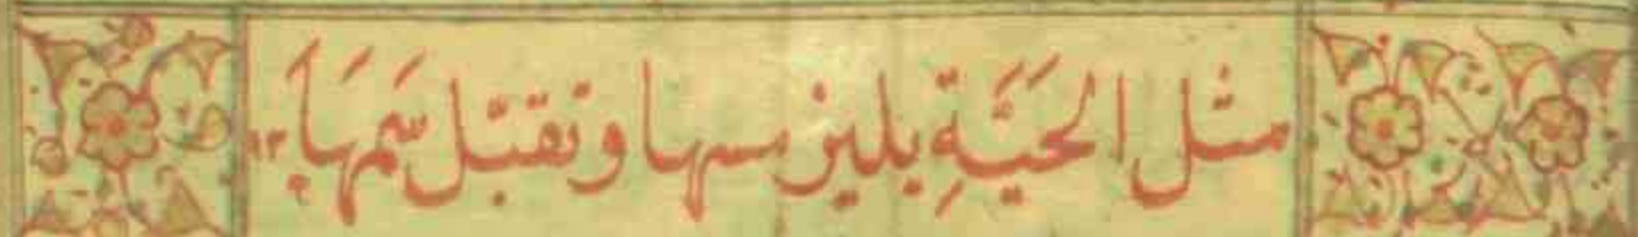 مثل الحَيَّةِ يلين مسها وتقبّل سَمُّهَا